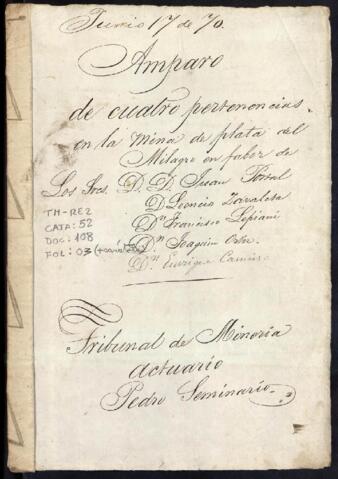 Junio 17 de 70.
Amparo
de cuatro pertenencias
en la mina de plata del
Milagro en fabor de
Los Sres. D. D. Juan Portal
D. Leoncio Zavaleta
Dn Francisco
Dn Joaquin
Dn. Enrique
TM-RE2
CAJA: 52
DOC: 108
FOL: 03
Tribunal de Mineria
actuario
Pedro Seminario